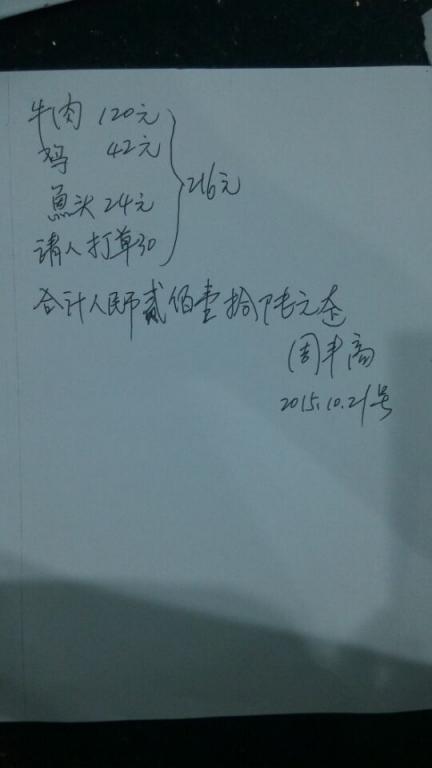 牛肉 120元
鸡 42元
魚头 24元
请人打草30
216元
合计人民币贰佰壹拾陆元整
周丰高
2015.10.21号